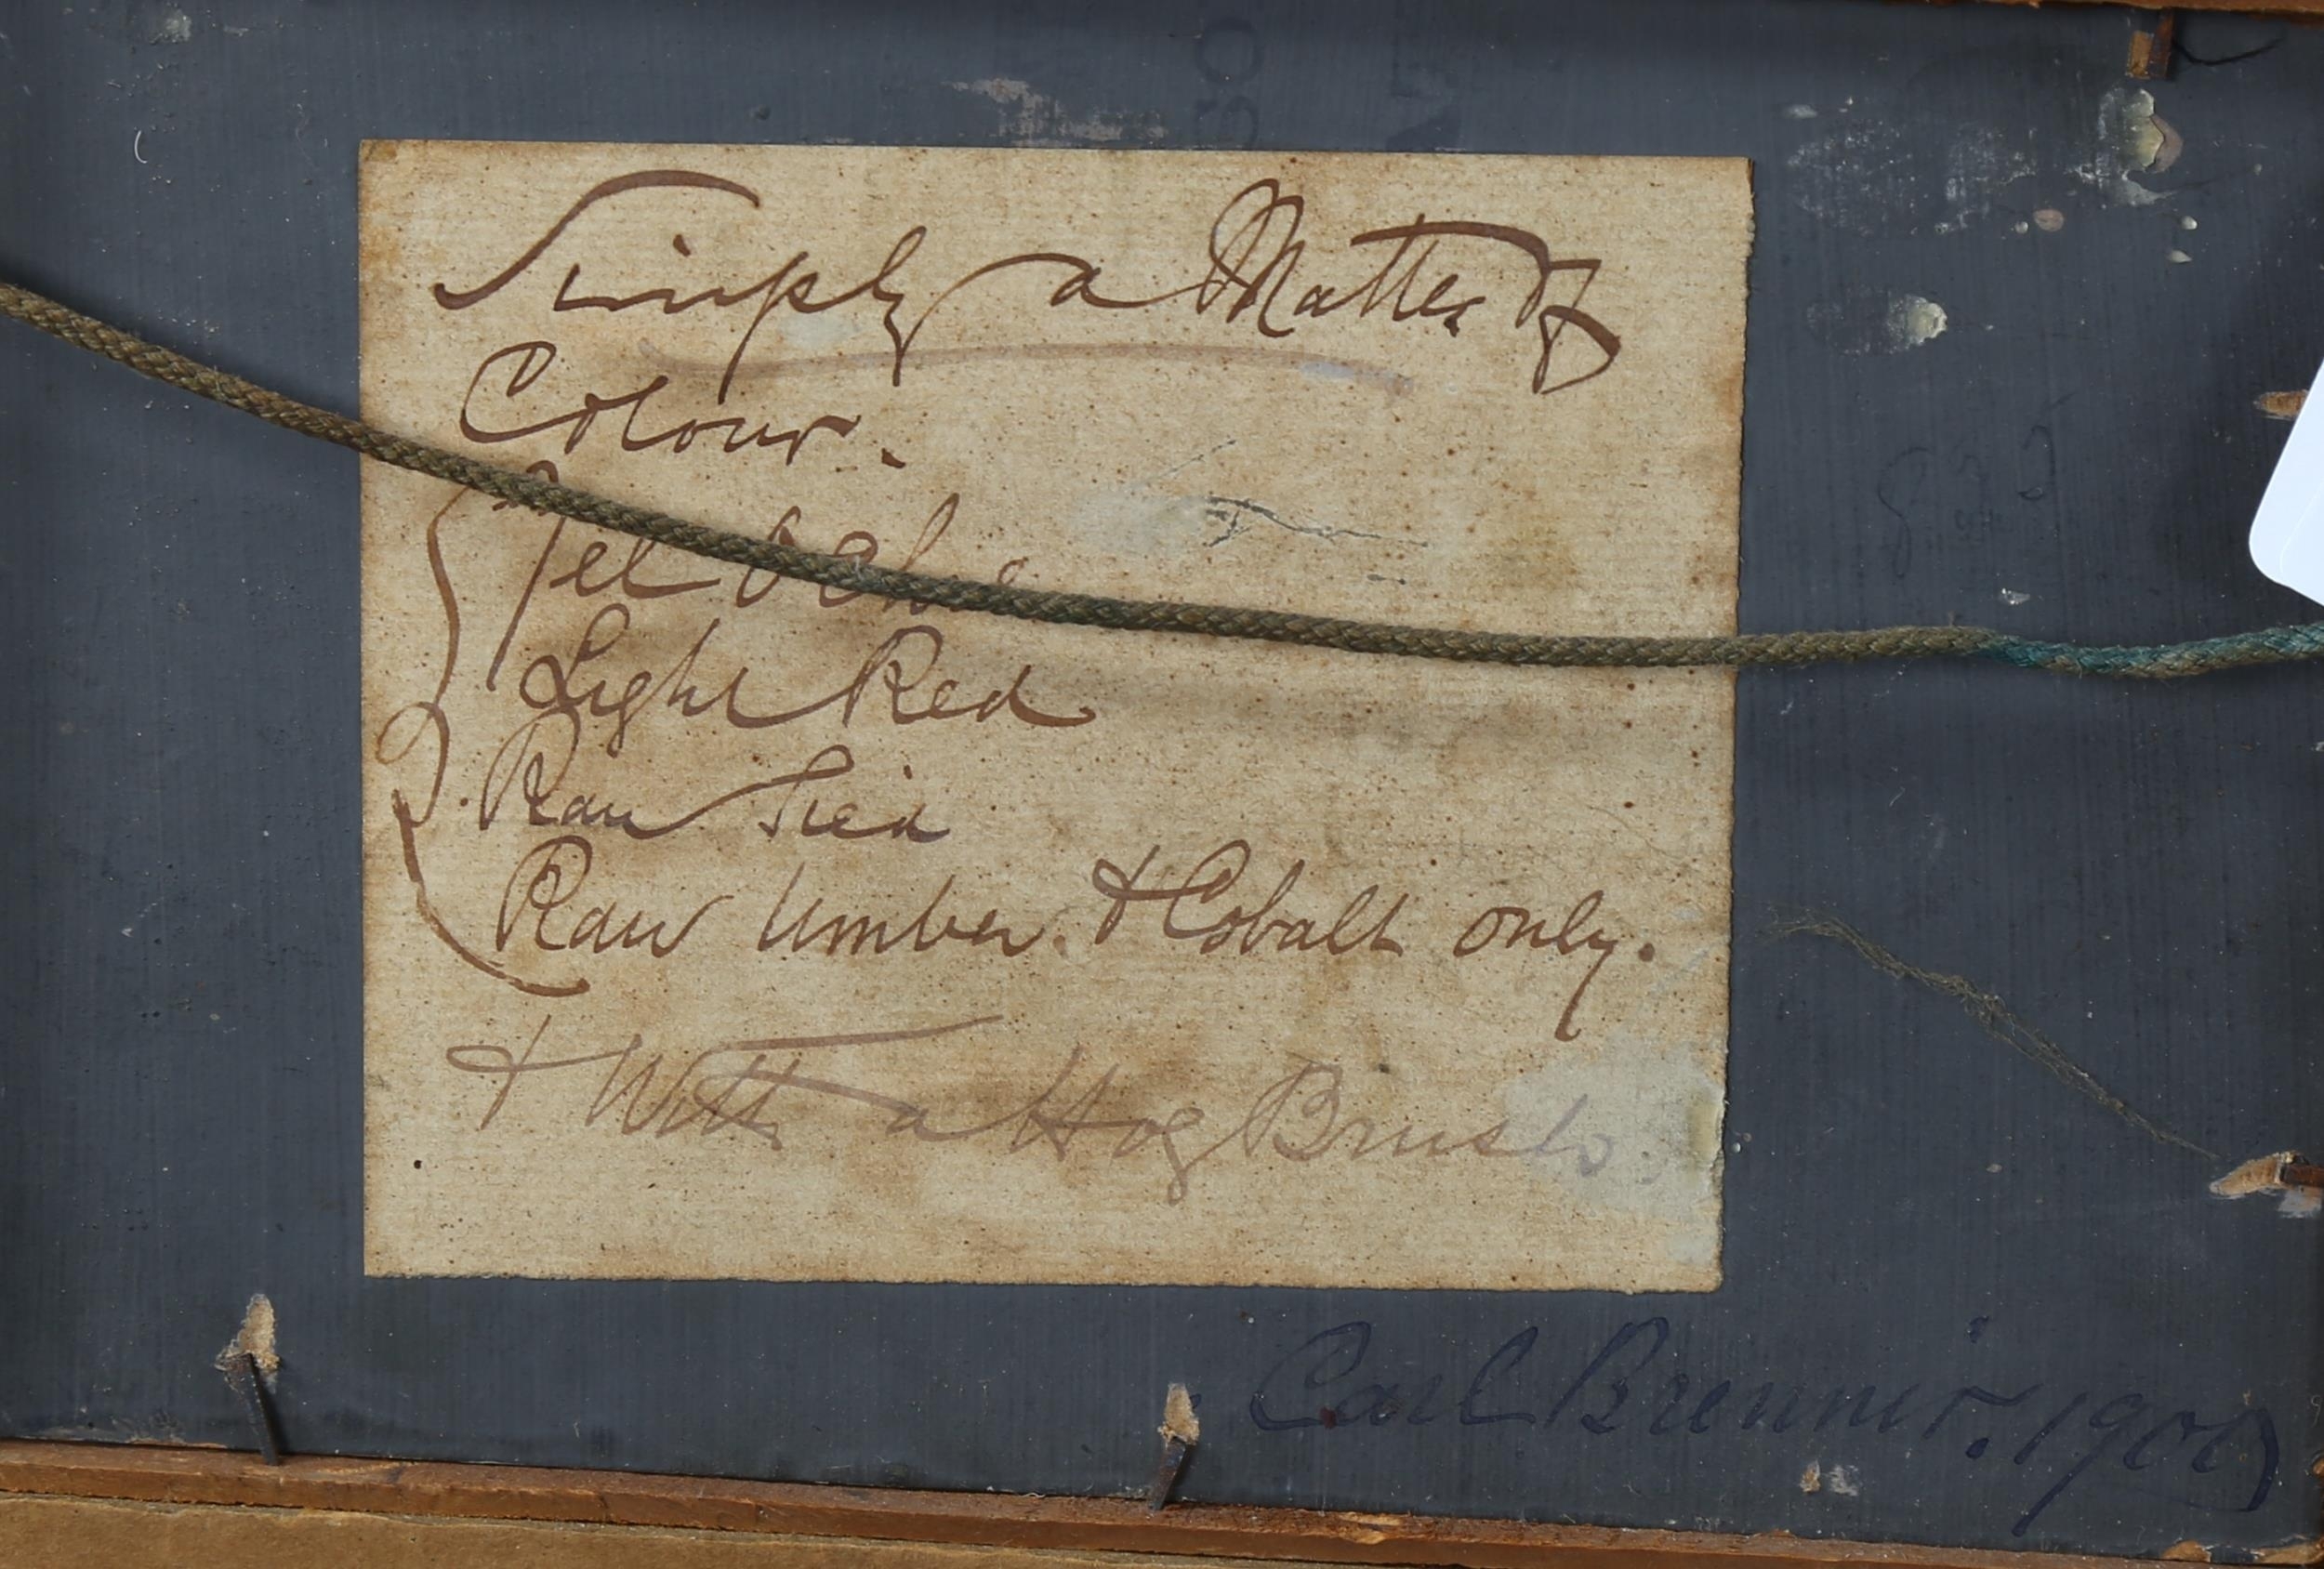 Simply a Matter of
Colour.
Yel Ochre
Light Red
Raw Sien
Raw Umber. & Cobalt only.
& With a Hog Brush.
Carl Brennir. 1901